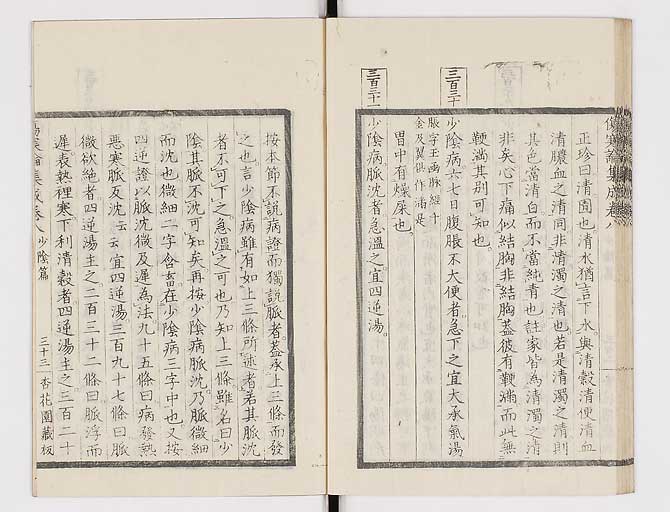 傷寒論集成卷八
正珍曰清圊也清水猶言下水與清穀清便清血
清膿血之清同非清濁之清也若是清濁之清則
其色當清白而不當純青也註家皆為清濁之清
非矣心下痛似結胸非結胸蓋彼有鞕滿而此無
鞕滿其別可知也
三百三十
少陰病六七日腹脹不大便者急下之宜大承氣湯
脹字玉函脈經千
金及翼俱作滿是
胃中有燥屎也
三百三十一
少陰病脈沈者急溫之宜四逆湯
按本節不說病證而獨說脈者蓋承上三條而發
之也言少陰病雖有如上三條所述者若其脈沈
者不可下之急溫之可也乃知上三條雖名曰少
陰其脈不沈可知矣再按少陰病脈沈乃脈微細
而沈也微細二字含畜在少陰病三字中也又按
四逆證以脈沈微及遲為法九十五條曰病發熱
惡寒脈反沈云云宜四逆湯三百九十七條曰脈
微欲絶者四逆湯主之二百三十二條曰脈浮而
遲表熱裡寒下利清穀者四逆湯主之三百二十
傷寒論集成卷八 少陰篇 三十三 杏花園藏板